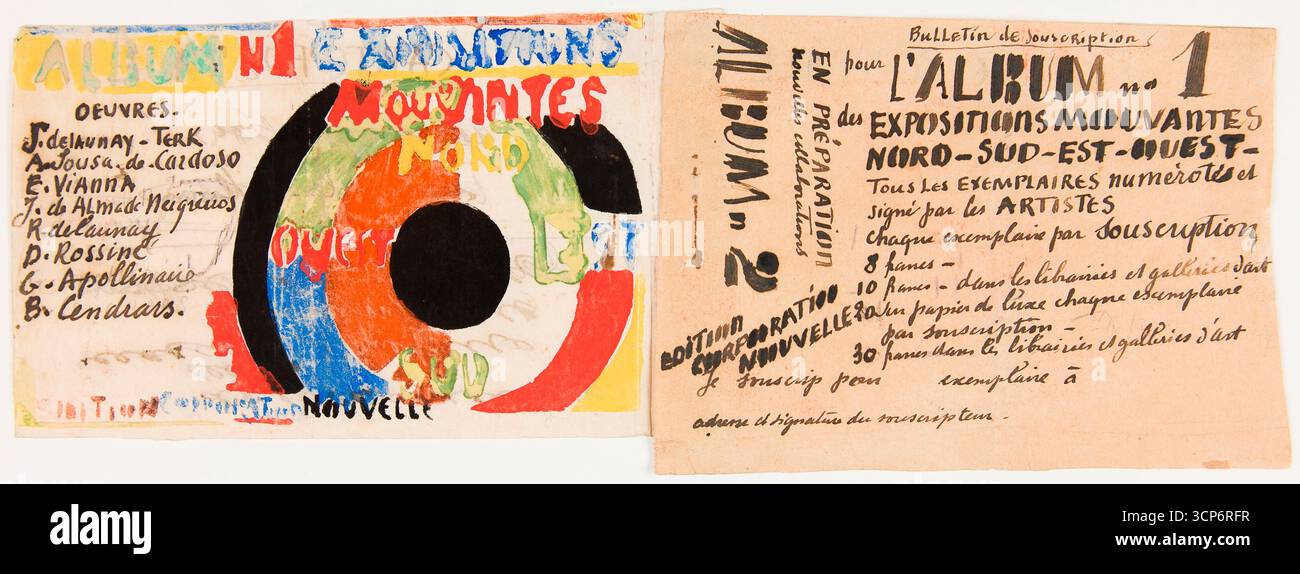 ALBUM N1 EXPOSITIONS
MOUVANTES
NORD
OUEST EST
SUD
OEUVRES.
S. delAUNAY-TERK
A. Sousa. de. Cardoso
E. ViANNA
J. de Almada Neigreiros
R. delaunay
D. Rossiné
G. Apollinaire
B. Cendrars.
EDITION CORPORATION NOUVELLE
ALBUM n 2
EN PRÉPARATION
nouvelles collaborations
EDITION
CORPORATION
NOUVELLE
Bulletin de Souscription
pour L'ALBUM no 1
des EXPOSITIONS MOUVANTES
NORD-SUD-EST-OUEST-
TOUS LES EXEMPLAIRES numérotés et
signé par les ARTISTES
chaque exemplaire par souscription
8 francs -
10 francs - dans les librairies et galleries d'art
20 sur papier de luxe chaque exemplaire
par souscription -
30 francs dans les librairies et galleries d'art
Je souscris pour exemplaire à
adresse et signature du souscripteur -
alamy
Image ID: 3CP6RFR
www.alamy.com